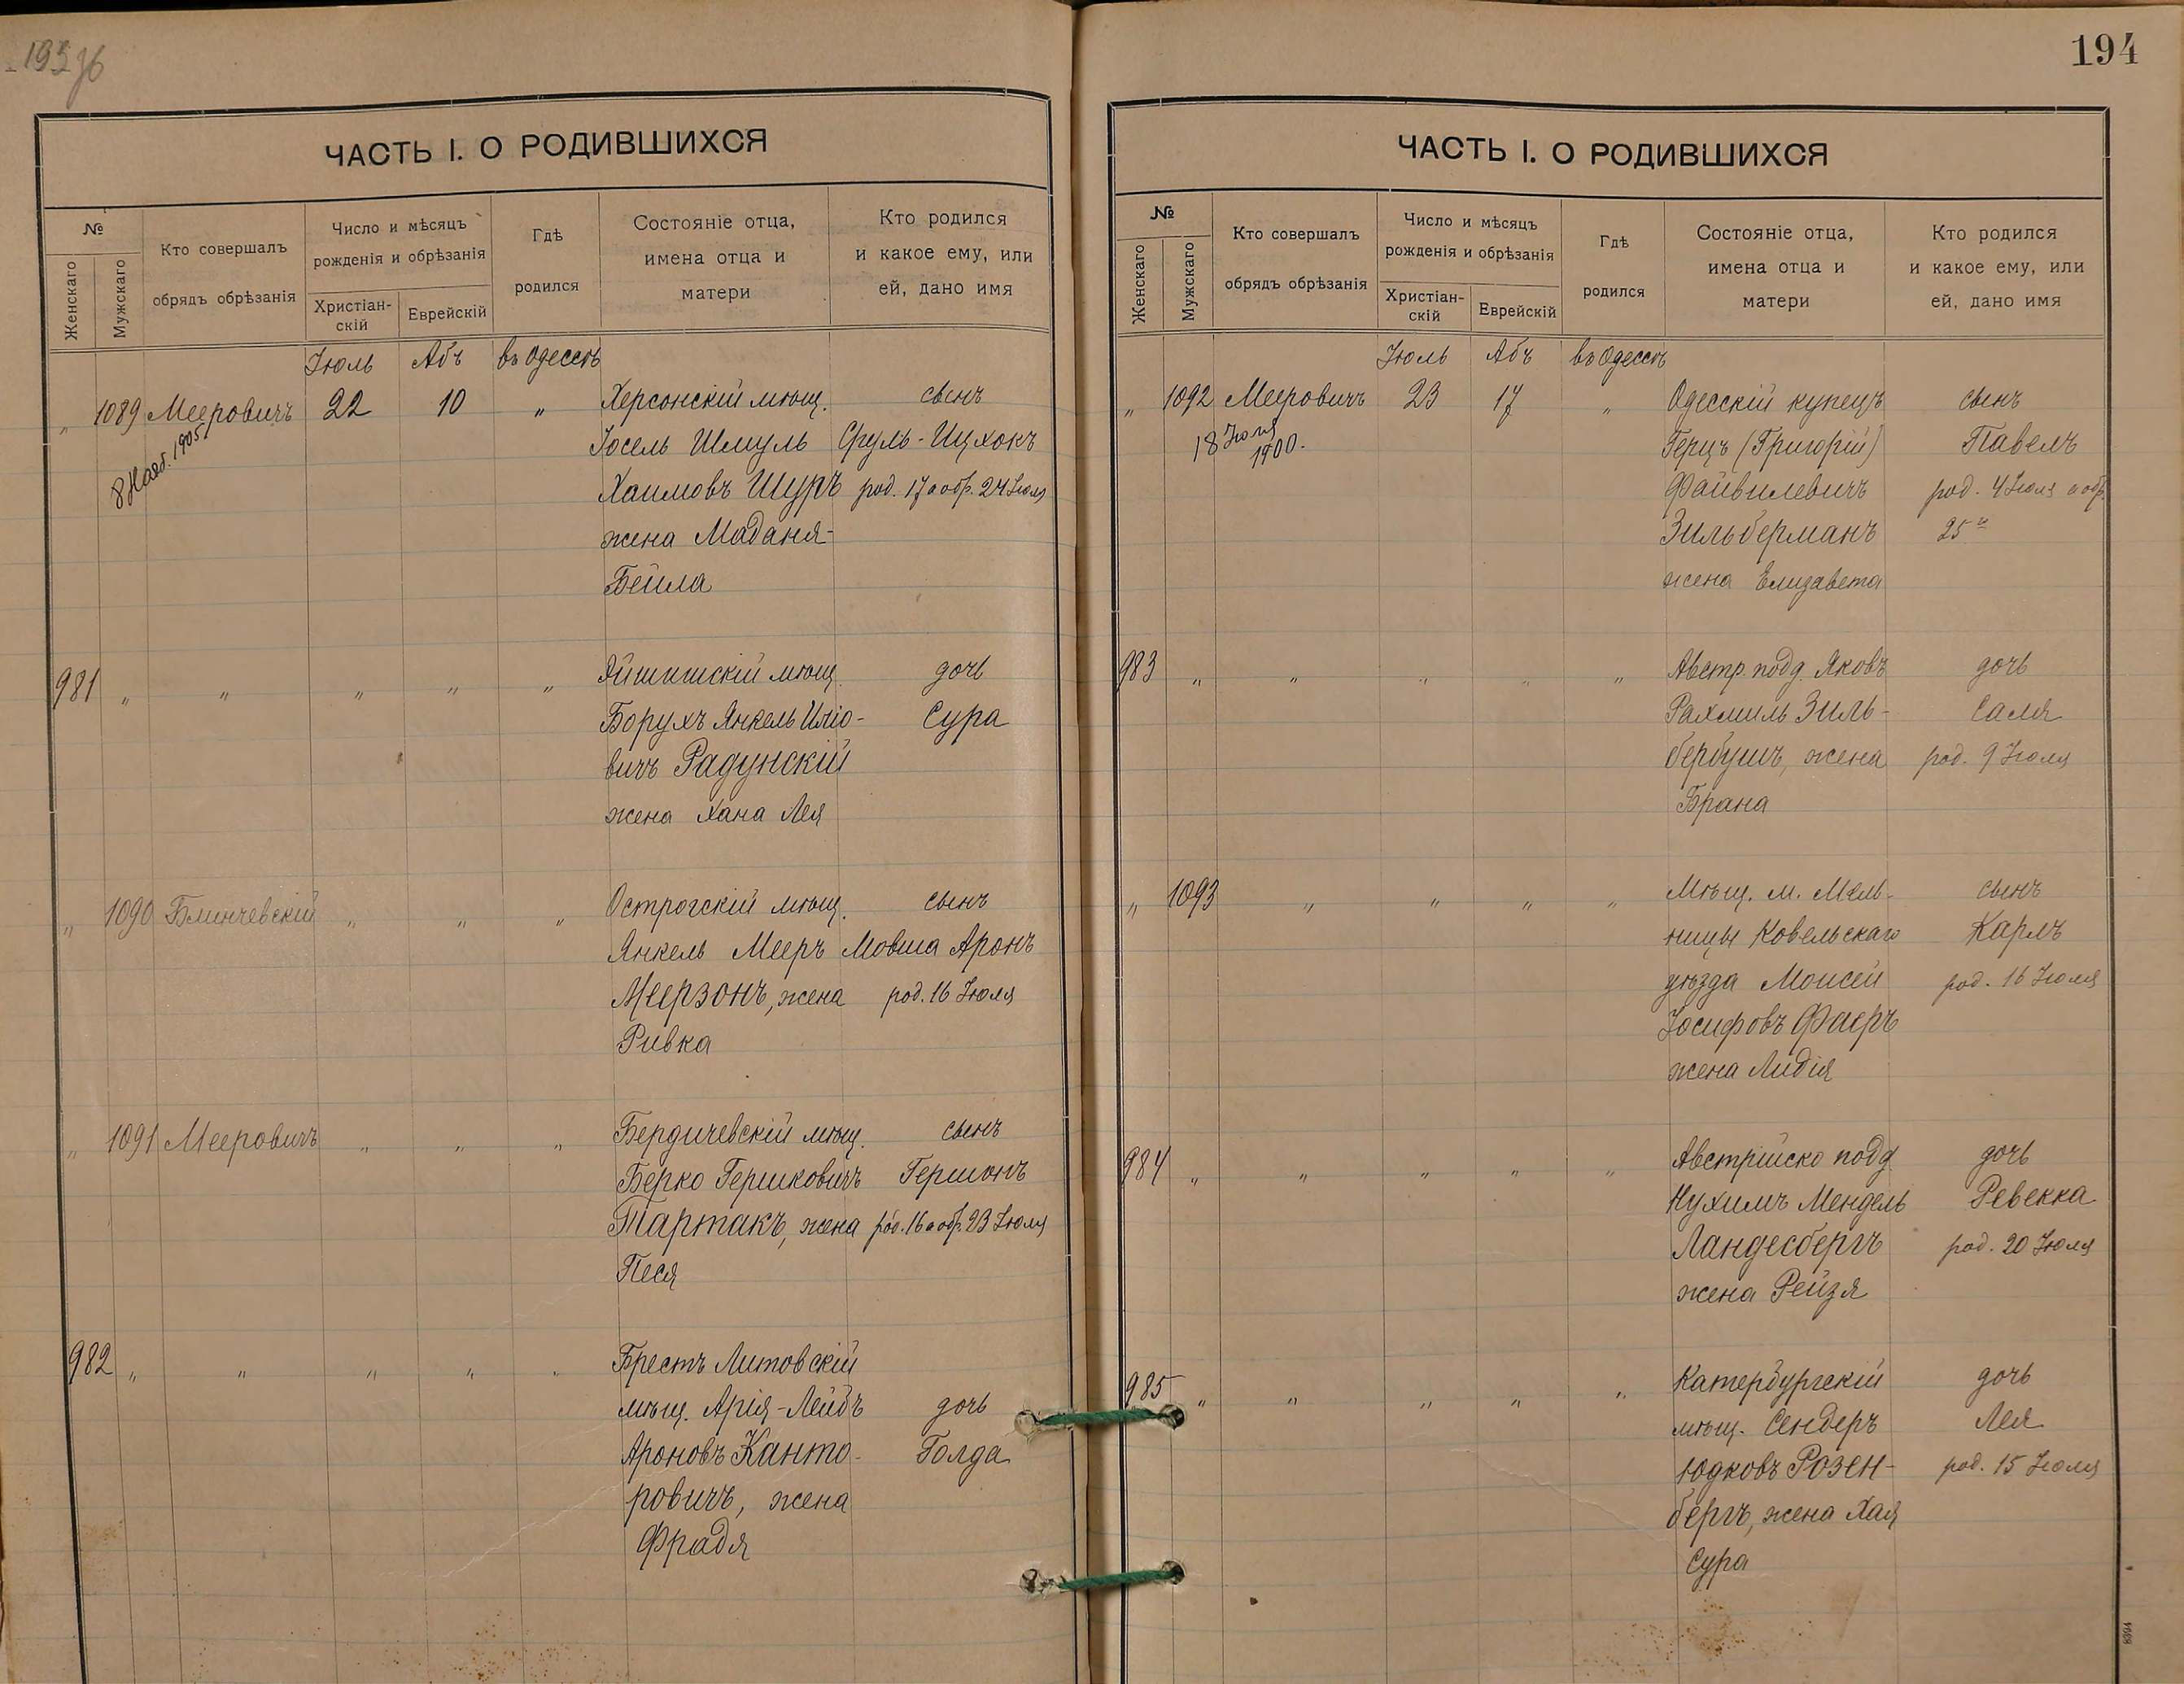 194
ЧАСТЬ I. О РОДИВШИХСЯ
№
Женскаго
Мужскаго
Кто совершалъ
обрядъ обрѣзанія
Число и мѣсяцъ
рожденія и обрѣзанія
Христіан-
скій
Еврейскій
Гдѣ
родился
Состояніе отца,
имена отца и
матери
Кто родился
и какое ему, или
ей, дано имя
Іюль Абъ въ Одессѣ
„ 1089 Мееровичъ 22 10 „ Херсонскій мѣщ. сынъ
8 Нояб. 1905
Іосель Шмуль Сруль-Ицхокъ
Хаимовъ Шуръ род. 17 а обр. 24 Іюля
жена Маданя-
Бейла
981 „ „ „ „ „ Эйшишскій мѣщ. дочь
Борухъ Янкель Иліо- Сура
вичъ Радунскій
жена Хана Лея
„ 1090 Блинчевскій „ „ „ Острогскій мѣщ. сынъ
Янкель Мееръ Мовша Аронъ
Меерзонъ, жена род. 16 Іюля
Ривка
„ 1091 Мееровичъ „ „ „ Бердичевскій мѣщ. сынъ
Берко Гершковичъ Гершонъ
Тартакъ, жена род. 16 а обр. 23 Іюля
Песя
982 „ „ „ „ „ Брестъ Литовскій
мѣщ. Арія-Лейбъ дочь
Ароновъ Канто- Голда
ровичъ, жена
Фрадя
ЧАСТЬ I. О РОДИВШИХСЯ
№
Женскаго
Мужскаго
Кто совершалъ
обрядъ обрѣзанія
Число и мѣсяцъ
рожденія и обрѣзанія
Христіан-
скій
Еврейскій
Гдѣ
родился
Состояніе отца,
имена отца и
матери
Кто родился
и какое ему, или
ей, дано имя
Іюль Абъ въ Одессѣ
„ 1092 Мееровичъ 23 17 „ Одесскій купецъ сынъ
18 Іюля
1900.
Герцъ (Григорій) Павелъ
Файвилевичъ род. 4 Іюля а обр.
Зильберманъ 25го
жена Елизавета
983 „ „ „ „ „ Австр. подд. Яковъ дочь
Рахмиль Зиль- Саля
бербушъ, жена род. 9 Іюля
Брана
„ 1093 „ „ „ „ Мѣщ. м. Мель- сынъ
ницы Ковельскаго Карлъ
уѣзда Моисей род. 16 Іюля
Іосифовъ Фаеръ
жена Лидія
984 „ „ „ „ „ Австрійско подд. дочь
Нухимъ Мендель Ревекка
Ландесбергъ род. 20 Іюля
жена Рейзя
985 „ „ „ „ „ Катербургскій дочь
мѣщ. Сендеръ Лея
Юдковъ Розен- род. 15 Іюля
бергъ, жена Хая
Сура